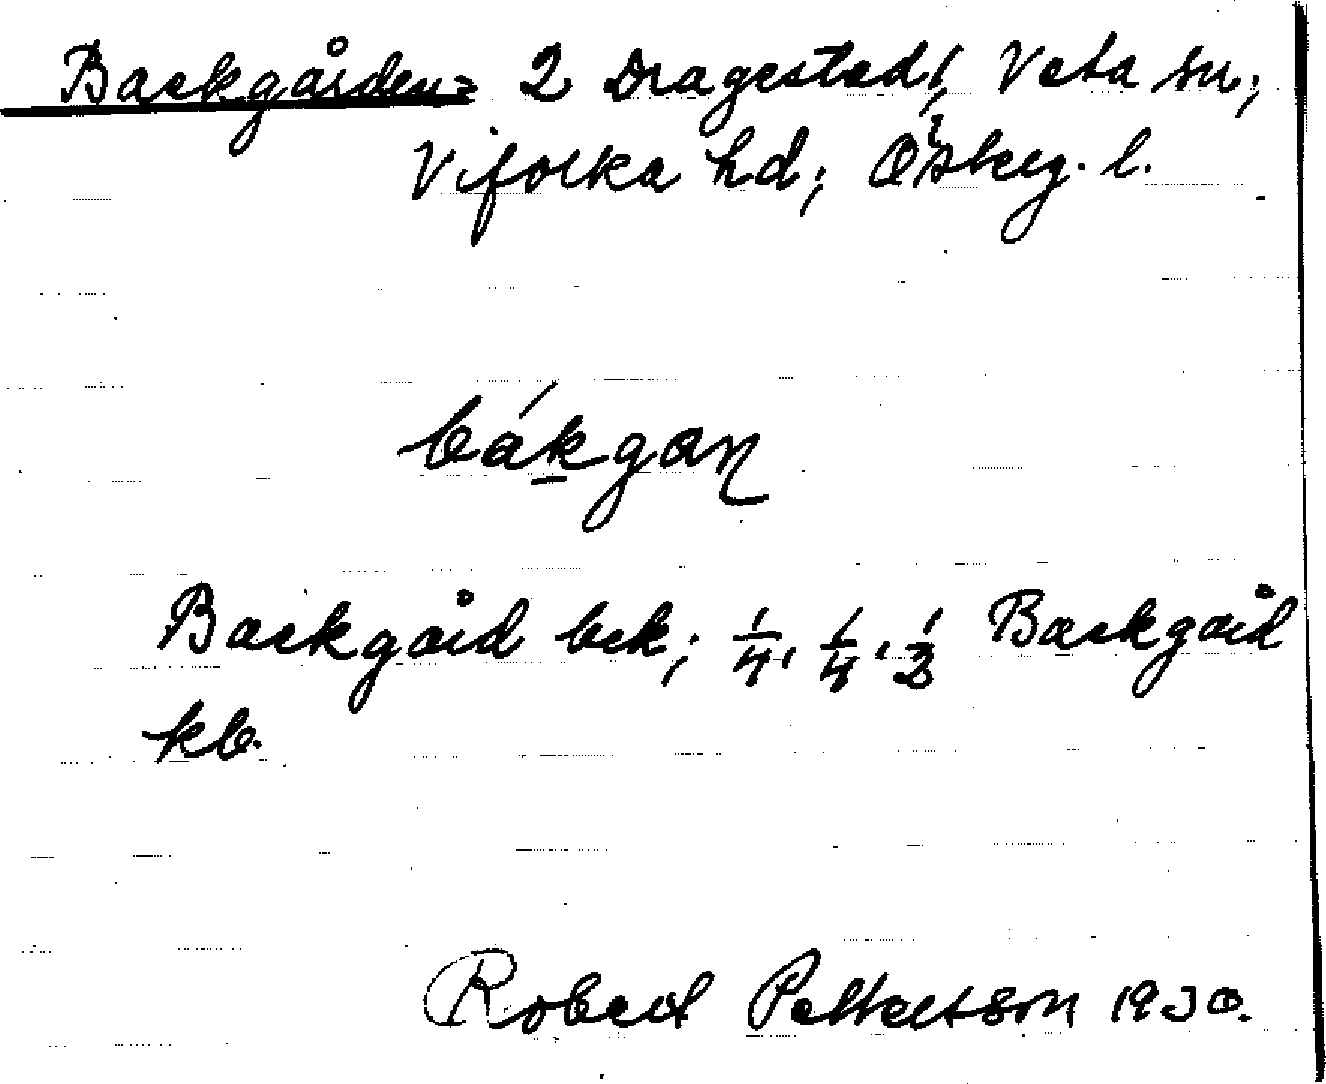 Backgården = 2 Dragestad, Veta sn,
Vifolka hd, Österg. l.
bákgaɳ
Backgård bek, 1/4, 1/4, 1/2 Backgård
kb.
Robert Pettersson 1930.